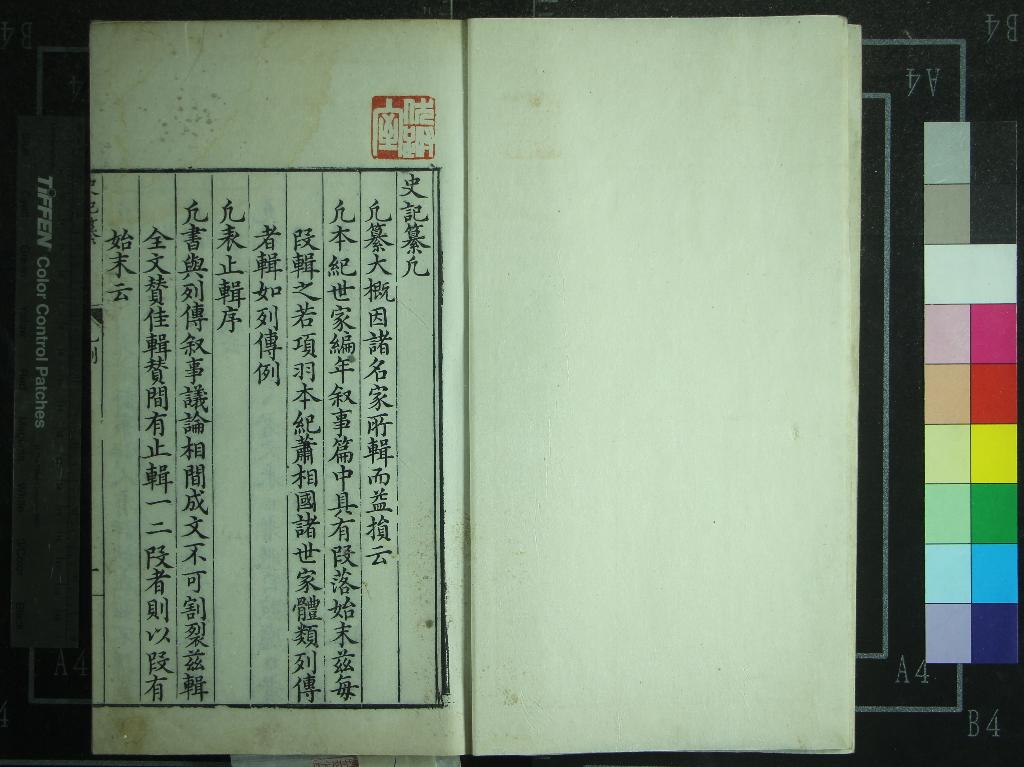 史記纂凡
凡纂大概因諸名家所輯而益損云
凡本紀世家編年叙事篇中具有段落始末茲每
段輯之若項羽本紀蕭相國諸世家體類列傳
者輯如列傳例
凡表止輯序
凡書與列傳叙事議論相間成文不可割裂茲輯
全文賛佳輯賛間有止輯一二段者則以段有
始末云
史記纂
TIFFEN Color Control Patches
A4
B4
A4
B4
A4